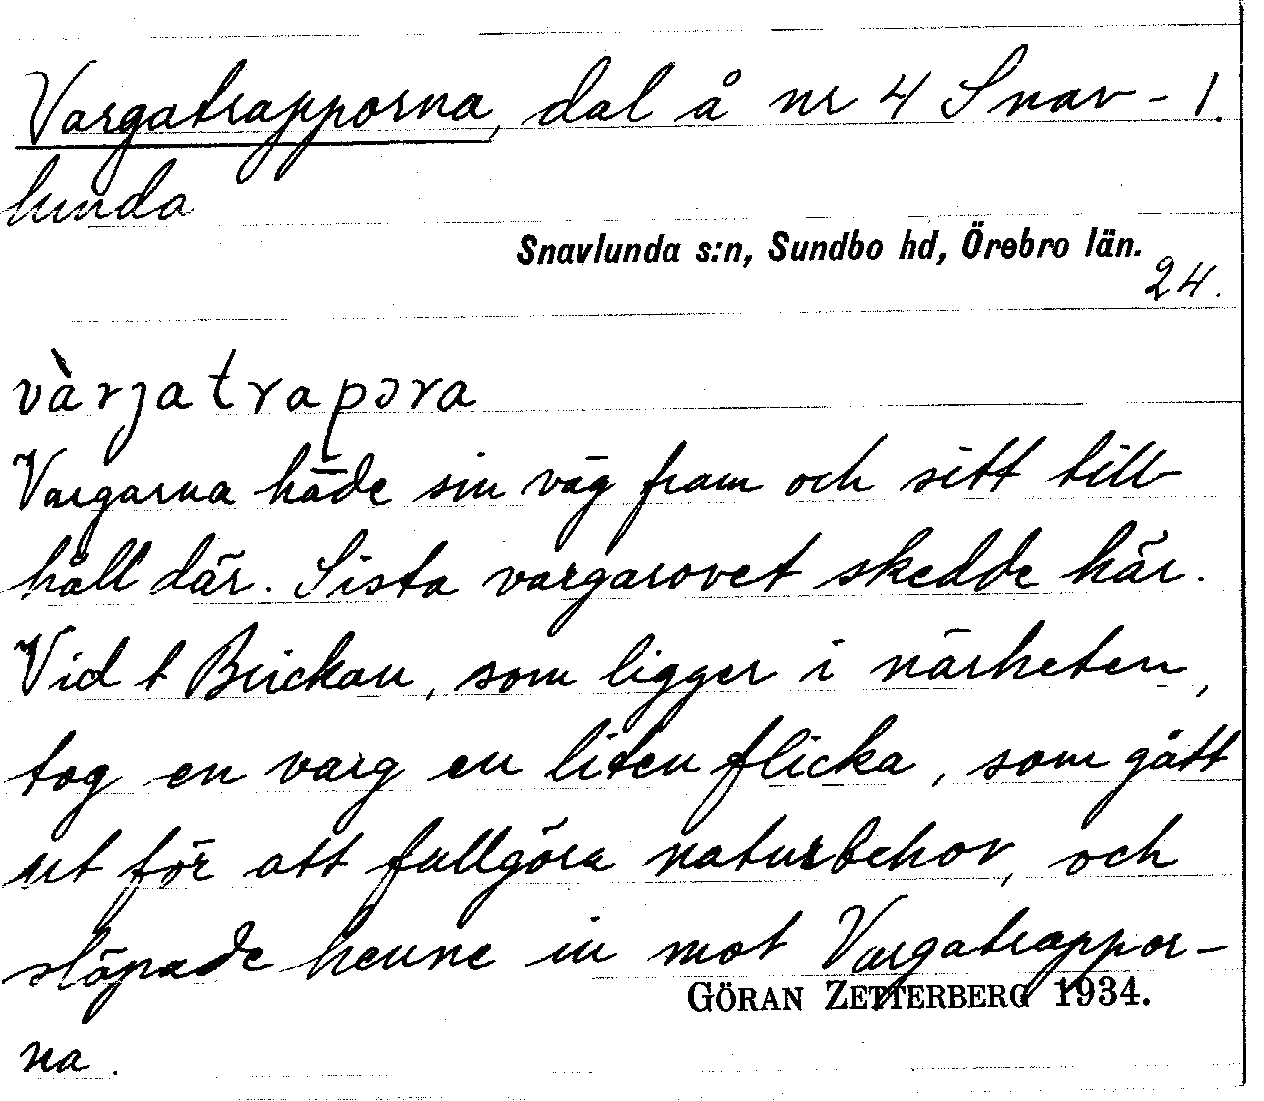 Vargatrapporna, dal å nr 4 Snav- 1.
lunda
Snavlunda s:n, Sundbo hd, Örebro län.
24.
vàrjatrapɔra
Vargarna hade sin väg fram och sitt till-
håll där. Sista vargarovet skedde här.
Vid t Brickan, som ligger i närheten,
tog en varg en liten flicka, som gått
ut för att fullgöra naturbehov, och
släpade henne in mot Vargatrappor-
GÖRAN ZETTERBERG 1934.
na.